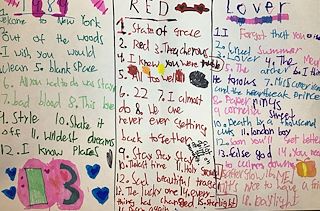 1989
1. Welcome to New York
out of the woods
I wish you would
clean 5. blank space
6. All you had to do was stay
7. bad blood 8. This love
9. Style 10. Shake it
off 11. wildest dreams
12. I know places
RED
1. State of grace
2. Red 3. Treacherous
4. I knew you were trouble
5. 
6. 22 7. I almost
do 8. We are
never ever getting
back together
9. Stay stay stay
12. Sad beautiful tragic
13. The lucky one 14. every
thing has changed 15. Starlight
Lover
1. I Forgot that you
2. Cruel Summer
3. Lover 4. The Man
5. The archer 6. I think
He knows 7. Miss americana
and the heartbreak prince
8. Paper rings
9. cornelia Street
10. Death by a thousand
cuts 11. london boy
12. soon you'll get better
13. false god 14. You need
to calm down
16. Me! 17.
It's nice to have a
friend 18. Daylight